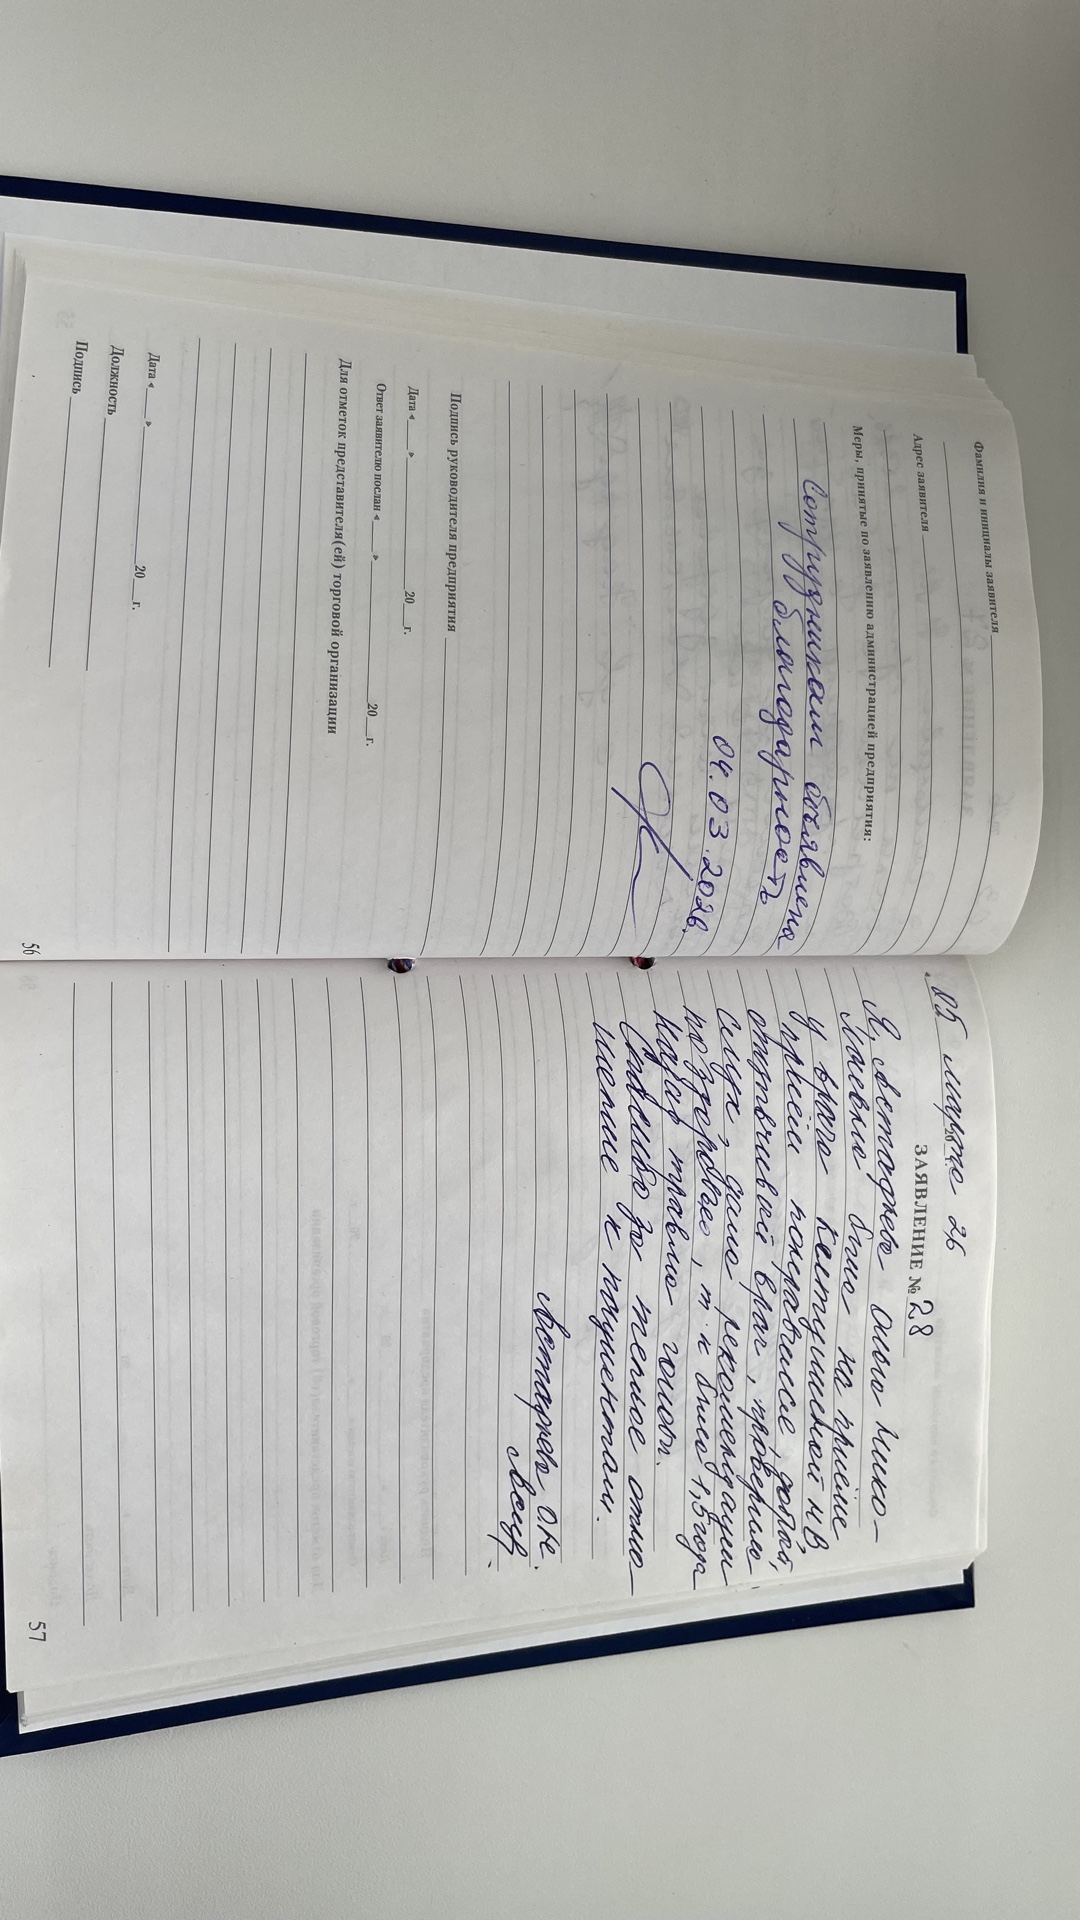 Фамилия и инициалы заявителя
Адрес заявителя
Меры, принятые по заявлению администрацией предприятия:
Сотрудникам объявлена
благодарность
04.03.2026.
Подпись руководителя предприятия
Дата « » 20 г.
Ответ заявителю послан « » 20 г.
Для отметок представителя(ей) торговой организации
Дата « » 20 г.
Должность
Подпись
56
« 05 марта 26
ЗАЯВЛЕНИЕ № 28
Я, Астафьева Анна Нико-
лаевна была на приёме
у врача М В,
приём понравился, добрый,
отзывчивый врач, проверила
слух, дала рекомендации
по здоровью, т. к была 1,5 года
назад травма головы.
Спасибо за теплое отно-
шение к пациентам.
Астафьева А.Н.
57